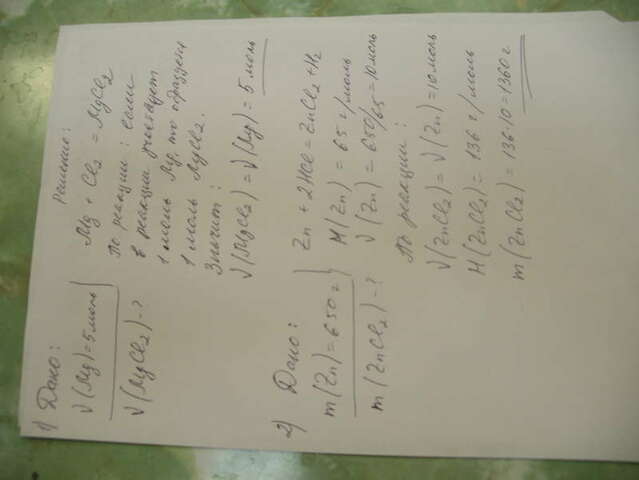 1) Дано:
√(Mg)=5 моль
√(MgCl2)-?
Решение:
Mg + Cl2 = MgCl2
По реакции: если
в реакции участвует
1 моль Mg, то образуется
1 моль MgCl2.
Значит:
√(MgCl2) = √(Mg) = 5 моль
2) Дано:
m(Zn)=650 г
m(ZnCl2)-?
Zn + 2HCl = ZnCl2 + H2
M(Zn) = 65 г/моль
√(Zn) = 650/65 = 10 моль
По реакции:
√(ZnCl2) = √(Zn) = 10 моль
M(ZnCl2) = 136 г/моль
m(ZnCl2) = 136·10 = 1360 г